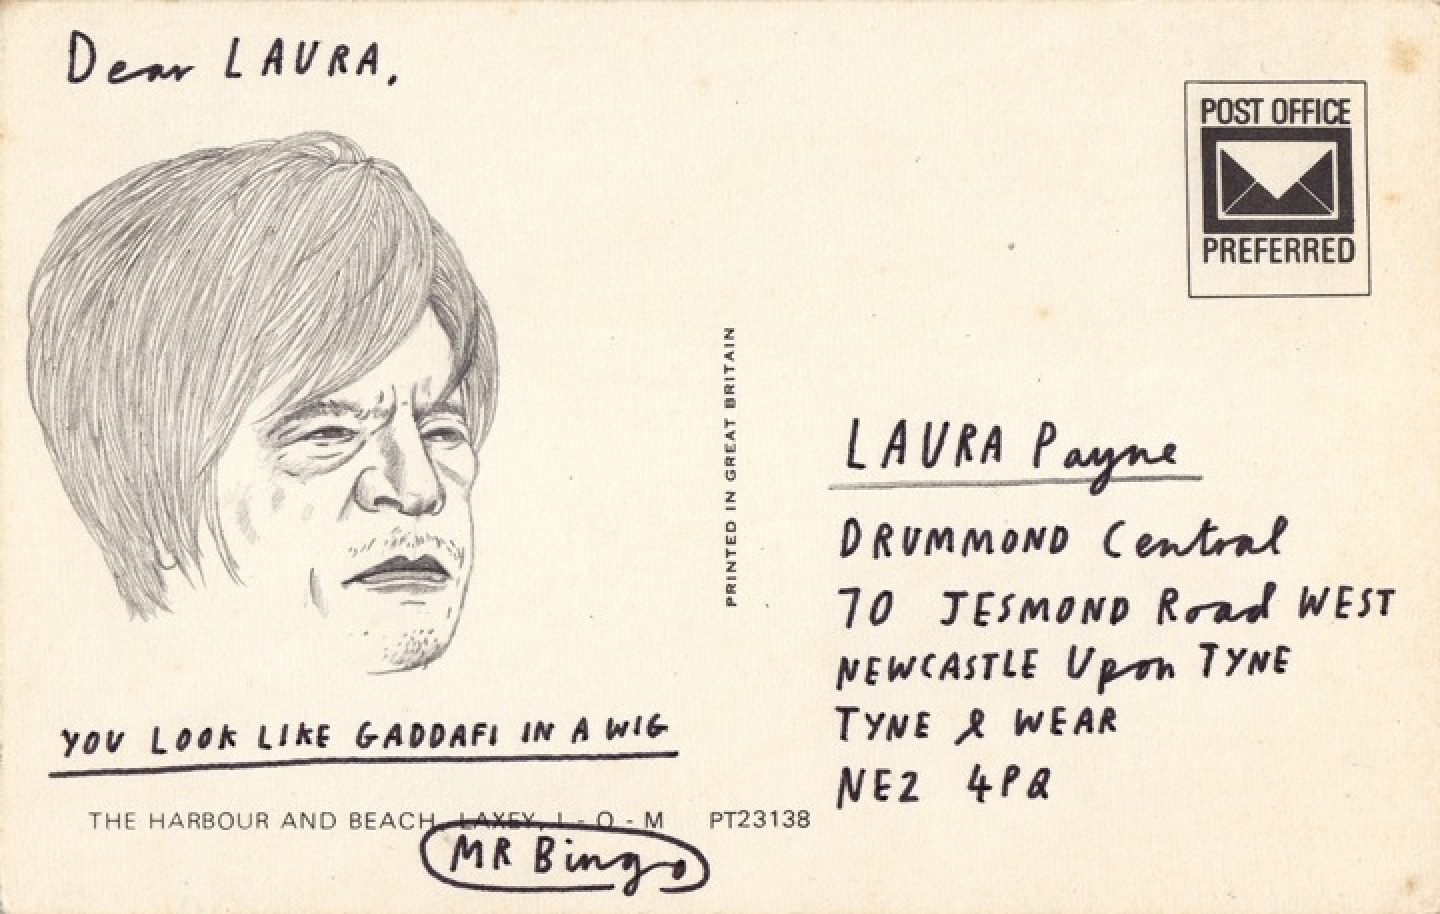 Dear LAURA,
YOU LOOK LIKE GADDAFI IN A WIG
THE HARBOUR AND BEACH, LAXEY, I - O - M PT23138
MR Bingo
PRINTED IN GREAT BRITAIN
POST OFFICE
PREFERRED
LAURA Payne
DRUMMOND Central
70 JESMOND Road WEST
NEWCASTLE Upon TYNE
TYNE & WEAR
NE2 4PQ